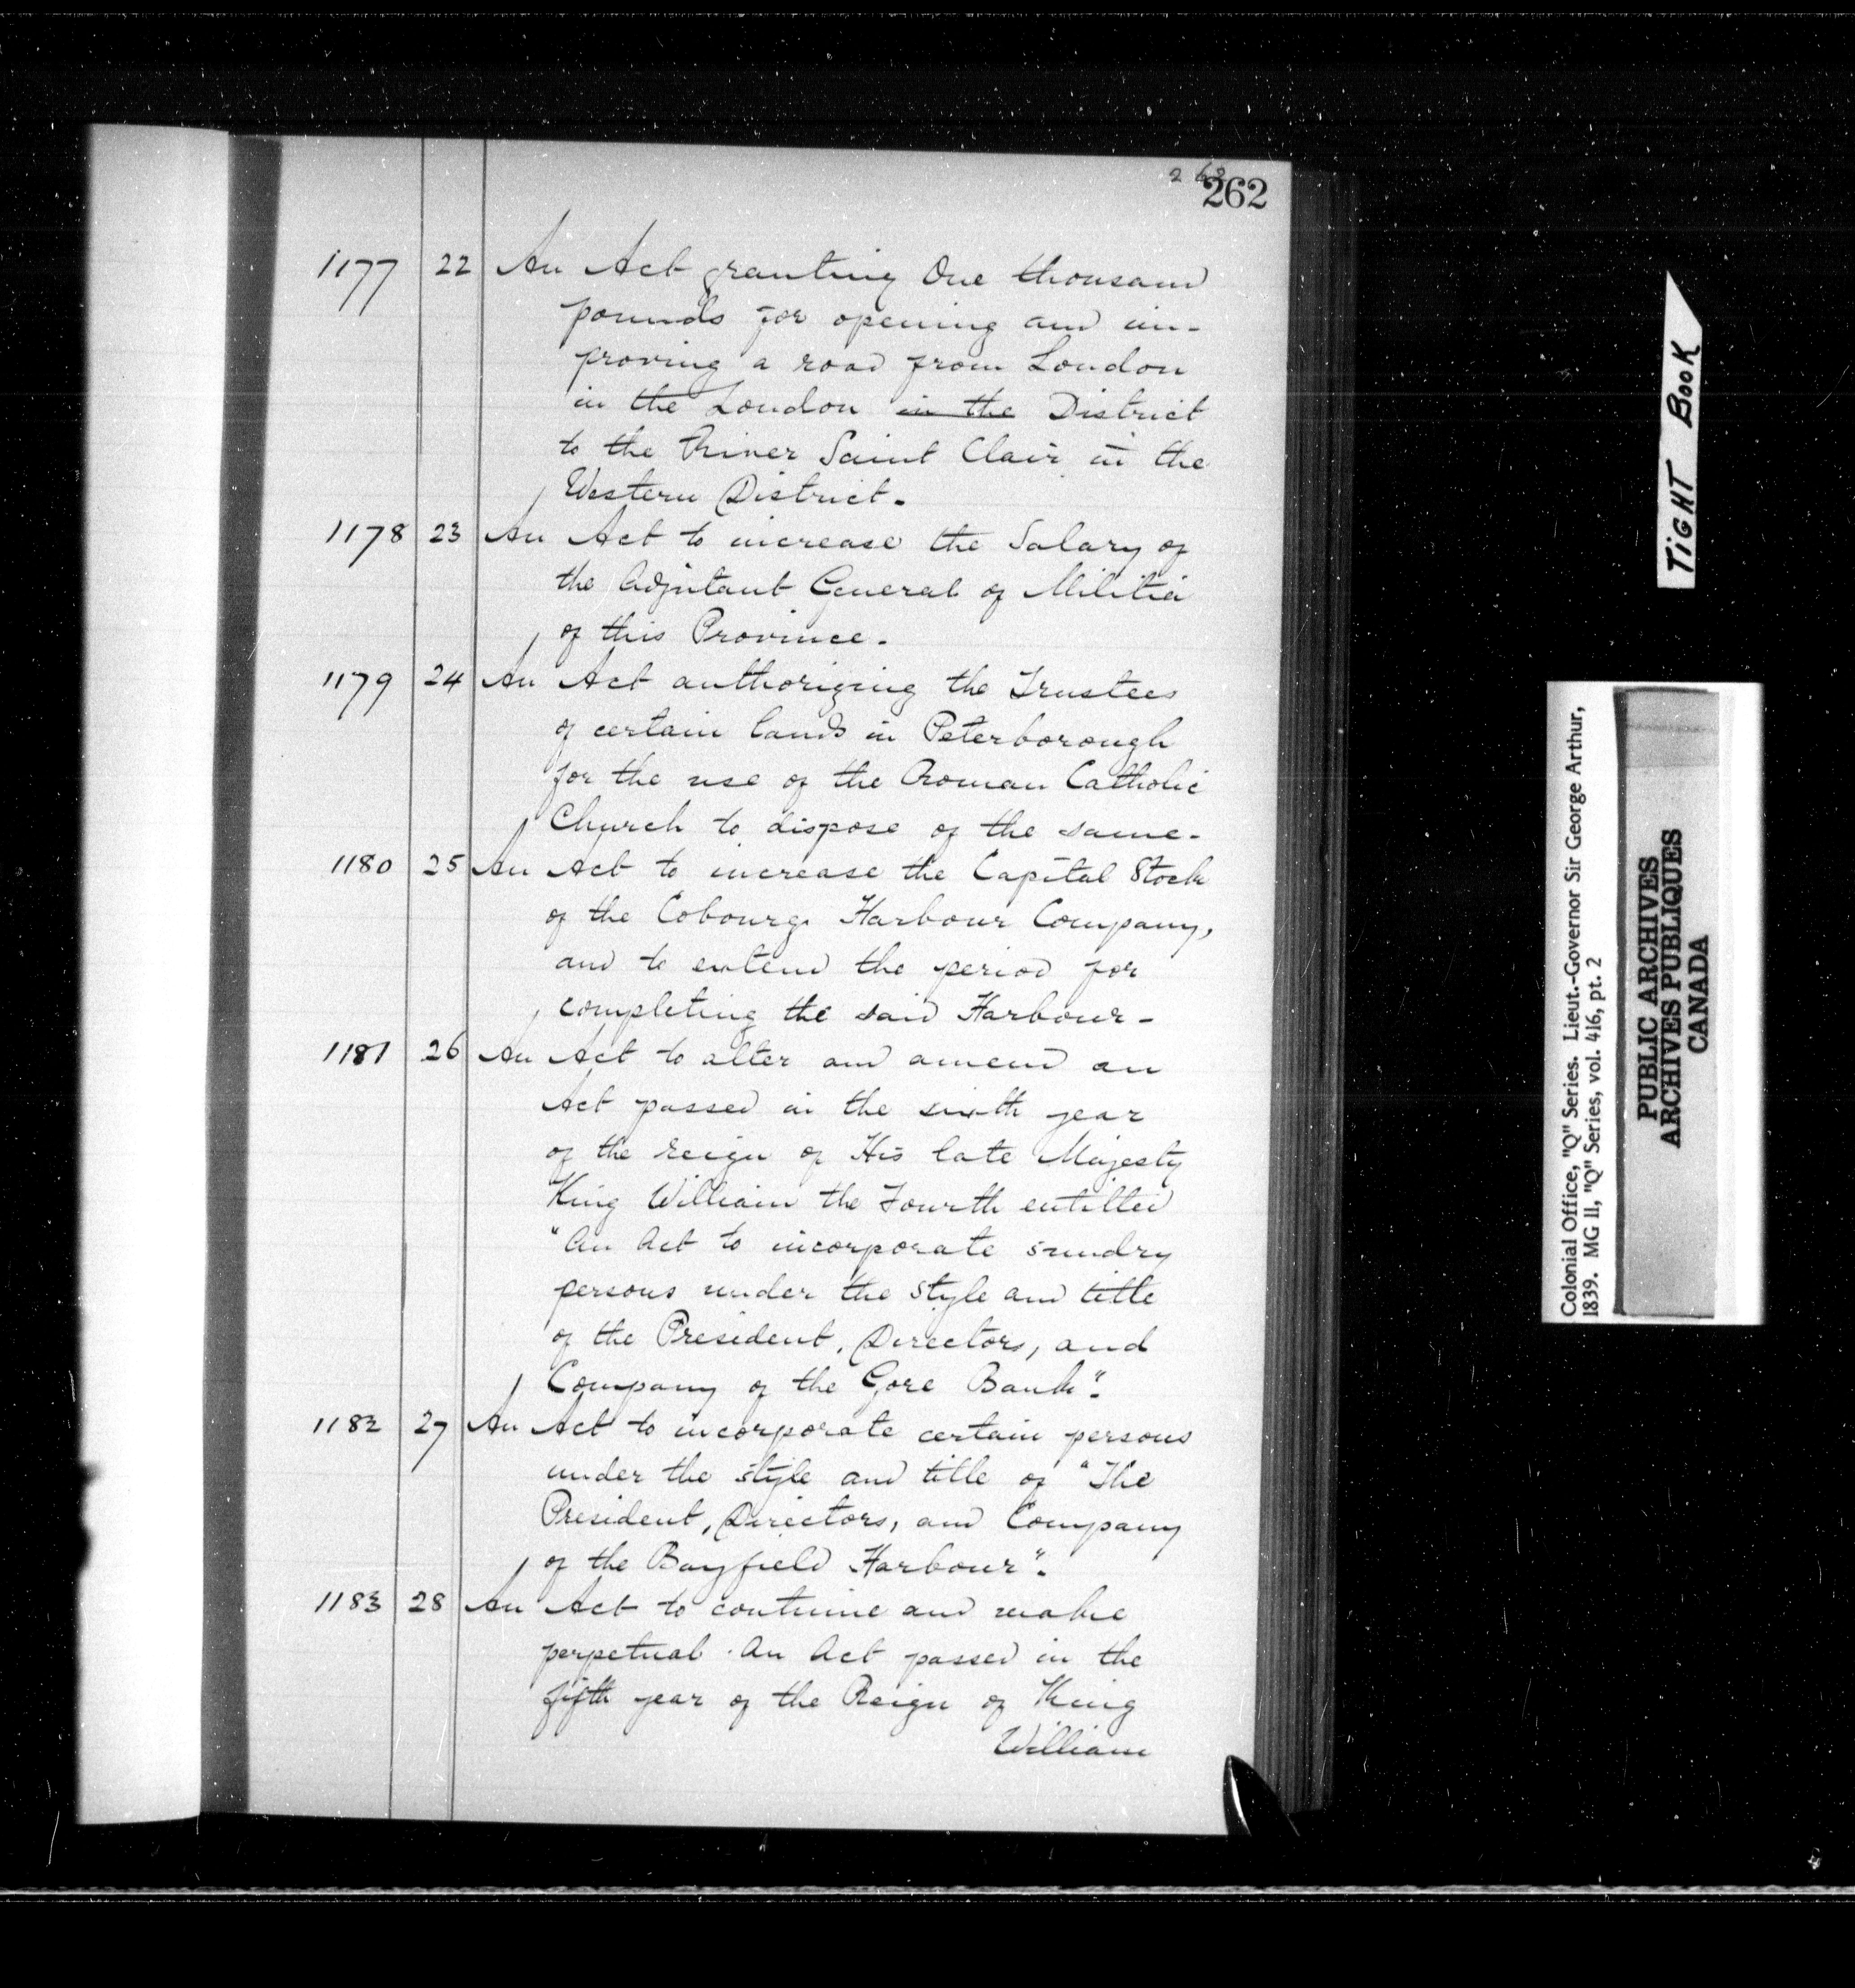 262
262
1177 22 An Act granting One thousand
pounds for opening and im-
proving a road from London
in the London in the District
to the River Saint Clair in the
Western District.
1178 23 An Act to increase the Salary of
the Adjutant General of Militia
of this Province.
1179 24 An Act authorizing the Trustees
of certain lands in Peterborough
for the use of the Roman Catholic
Church to dispose of the same.
1180 25 An Act to increase the Capital Stock
of the Cobourg Harbour Company,
and to extend the period for
completing the said Harbour -
1181 26 An Act to alter and amend an
Act passed in the sixth year
of the reign of His late Majesty
King William the Fourth entitled
"An Act to incorporate sundry
persons under the style and title
of the President, Directors, and
Company of the Gore Bank".
1182 27 An Act to incorporate certain persons
under the style and title of "The
President, Directors, and Company
of the Bayfield Harbour".
1183 28 An Act to continue and make
perpetual An Act passed in the
fifth year of the Reign of King
William
TIGHT BOOK
Colonial Office, "Q" Series. Lieut.-Governor Sir George Arthur,
1839. MG 11, "Q" Series, vol. 416, pt. 2
PUBLIC ARCHIVES
ARCHIVES PUBLIQUES
CANADA